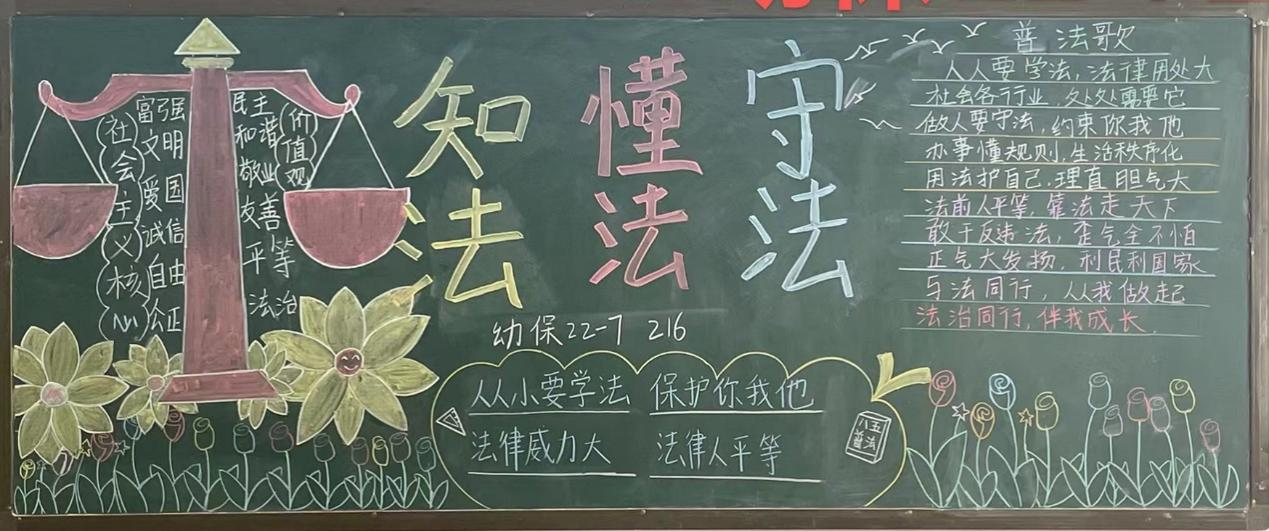 社会主义核心
价值观
富强
文明
爱国
诚信
自由
公正
民主
和谐
敬业
友善
平等
法治
知法
懂法
守法
幼保22-7 216
人人小要学法 保护你我他
法律威力大 法律人平等
八五
普法
普法歌
人人要学法,法律用处大
社会各行业,处处需要它
做人要守法,约束你我他
办事懂规则,生活秩序化
用法护自己,理直胆气大
法前人平等,靠法走天下
敢于反违法,歪气全不怕
正气大发扬,利民利国家
与法同行,从我做起
法治同行,伴我成长.